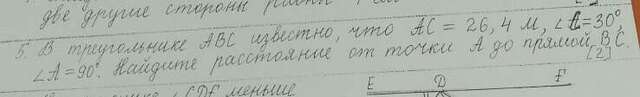 две другие стороны равны
5. В треугольнике ABC известно, что AC = 26,4 м, ∠C=30°,
∠A=90°. Найдите расстояние от точки A до прямой BC.
[2]
CDF меньше
E D F